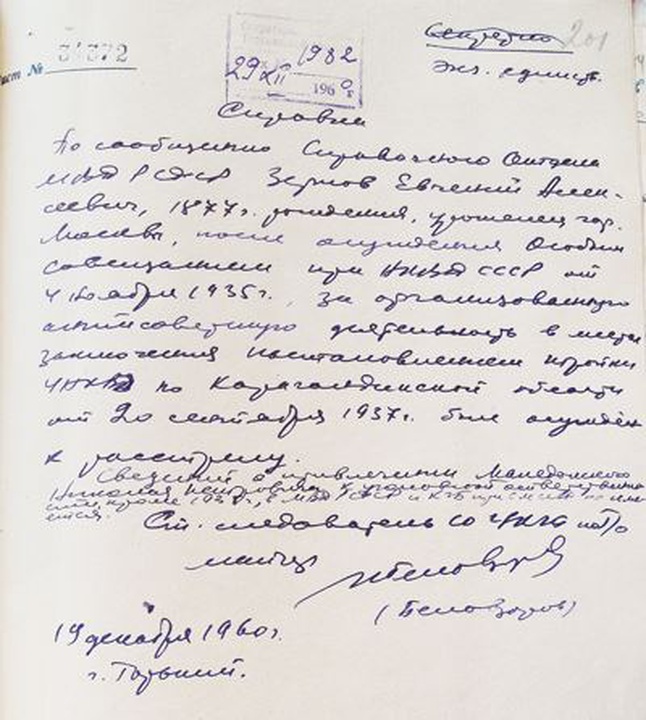 Секретно 201
экз. единств.
ист № 31372
29 XII 1982
196 0 г.
Справка
По сообщению Справочного Отдела
МВД РСФСР Зернов Евгений Алек-
сеевич, 1877 г. рождения, уроженец гор.
Москвы, после осуждения Особым
совещанием при НКВД СССР от
4 ноября 1935 г., за организованную
антисоветскую деятельность в местах
заключения постановлением тройки
УНКВД по Карагандинской области
от 20 сентября 1937 г. был осужден
к расстрелу.
Сведений о привлечении Македонского
Николая Петровича к уголовной ответственно
сти, кроме 193 г., в МВД РСФСР и КГБ при СМ СССР не име
ется.
Ст. следователь СО УКГБ по ГО
майор
(Белозоров)
19 декабря 1960 г.
г. Горький.